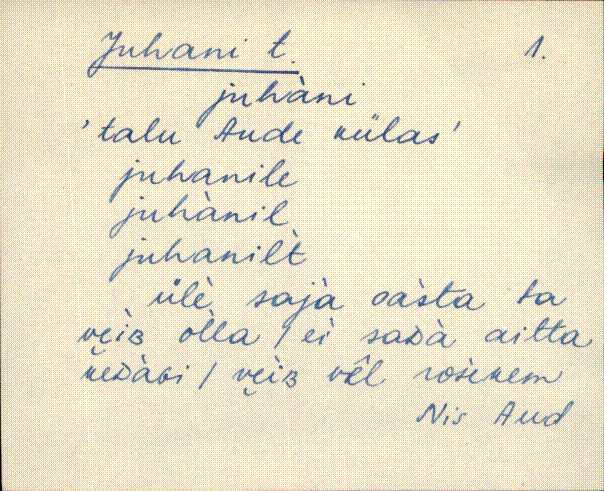 Juhani t. 1.
juhàni
'talu Aude külas'
juhanile
juhànil
juhanilt̀
ülè sajà oàsta ta
vęìʙ òlla / eì saᴅà aitta
keᴅàɢi / vęìʙ vêl rosèkem
Nis Aud